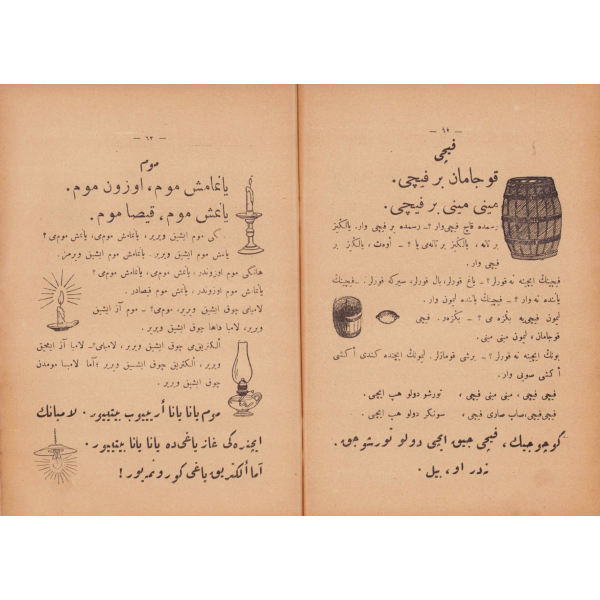 — ٦٣ —
موم
یانمامش موم، اوزون موم.
یانمش موم، قیصا موم.
کی موم ایشیق ویریر، یانمامش موم‌می، یانمش موم‌می؟
یانمش موم ایشیق ویریر. یانمامش موم ایشیق ویرمز.
هانکی موم اوزوندر. یانمش موم‌می، یانمامش موم‌می؟
یانمامش موم اوزوندر، یانمش موم قیصادر.
لامبامی چوق ایشیق ویریر، موم‌می؟ ـ موم آز ایشیق
ویریر، لامبا داها چوق ایشیق ویریر.
ألکتریق‌می چوق ایشیق ویریر، لامبامی؟ـ لامبا آز ایشیق
ویریر، ألکتریق چوق ایشیق ویریر ؛ أما لامبا مومدن
چوق ایشیق ویریر.
موم یانا یانا أریییوب بیتییور. لامبانك
ایچنده‌کی غاز یاغی ده یانا یانا بیتییور.
أما ألکتریق یاغی کورونمه‌یور!
— ٦٤ —
فیچی
قوجامان بر فیچی.
مینی مینی بر فیچی.
رسمده قاچ فیچی وار؟ ـ رسمده بر فیچی وار. یالکیز
بر تانه، یالکیز بر تانه‌می یا؟ ـ أوه‌ت، یالکیز بر
فیچی وار.
فیچینك ایچینه نه قورلر؟ ـ یاغ قورلر، بال قورلر، سیرکه قورلر. ـ فیچینك
یاننده نه وار؟ ـ فیچینك یاننده لیمون وار.
لیمون فیچی‌یه بکزه‌ر می؟ ـ بکزه‌ر. فیچی
قوجامان، لیمون مینی مینی.
بونك ایچینه نه قورلر؟ ـ برشی قومازلر. لیمونك ایچنده کندی أکشی
أکشی صویی وار.
فیچی فیچی، مینی مینی فیچی، تورشو دولو هپ ایچی.
فیچی فیچی، صاپ صاری فیچی، سونکر دولو هپ ایچی.
کوچوجیك، فیچی جیق ایچی دولو تورشوجق.
نه‌در او، بیل.